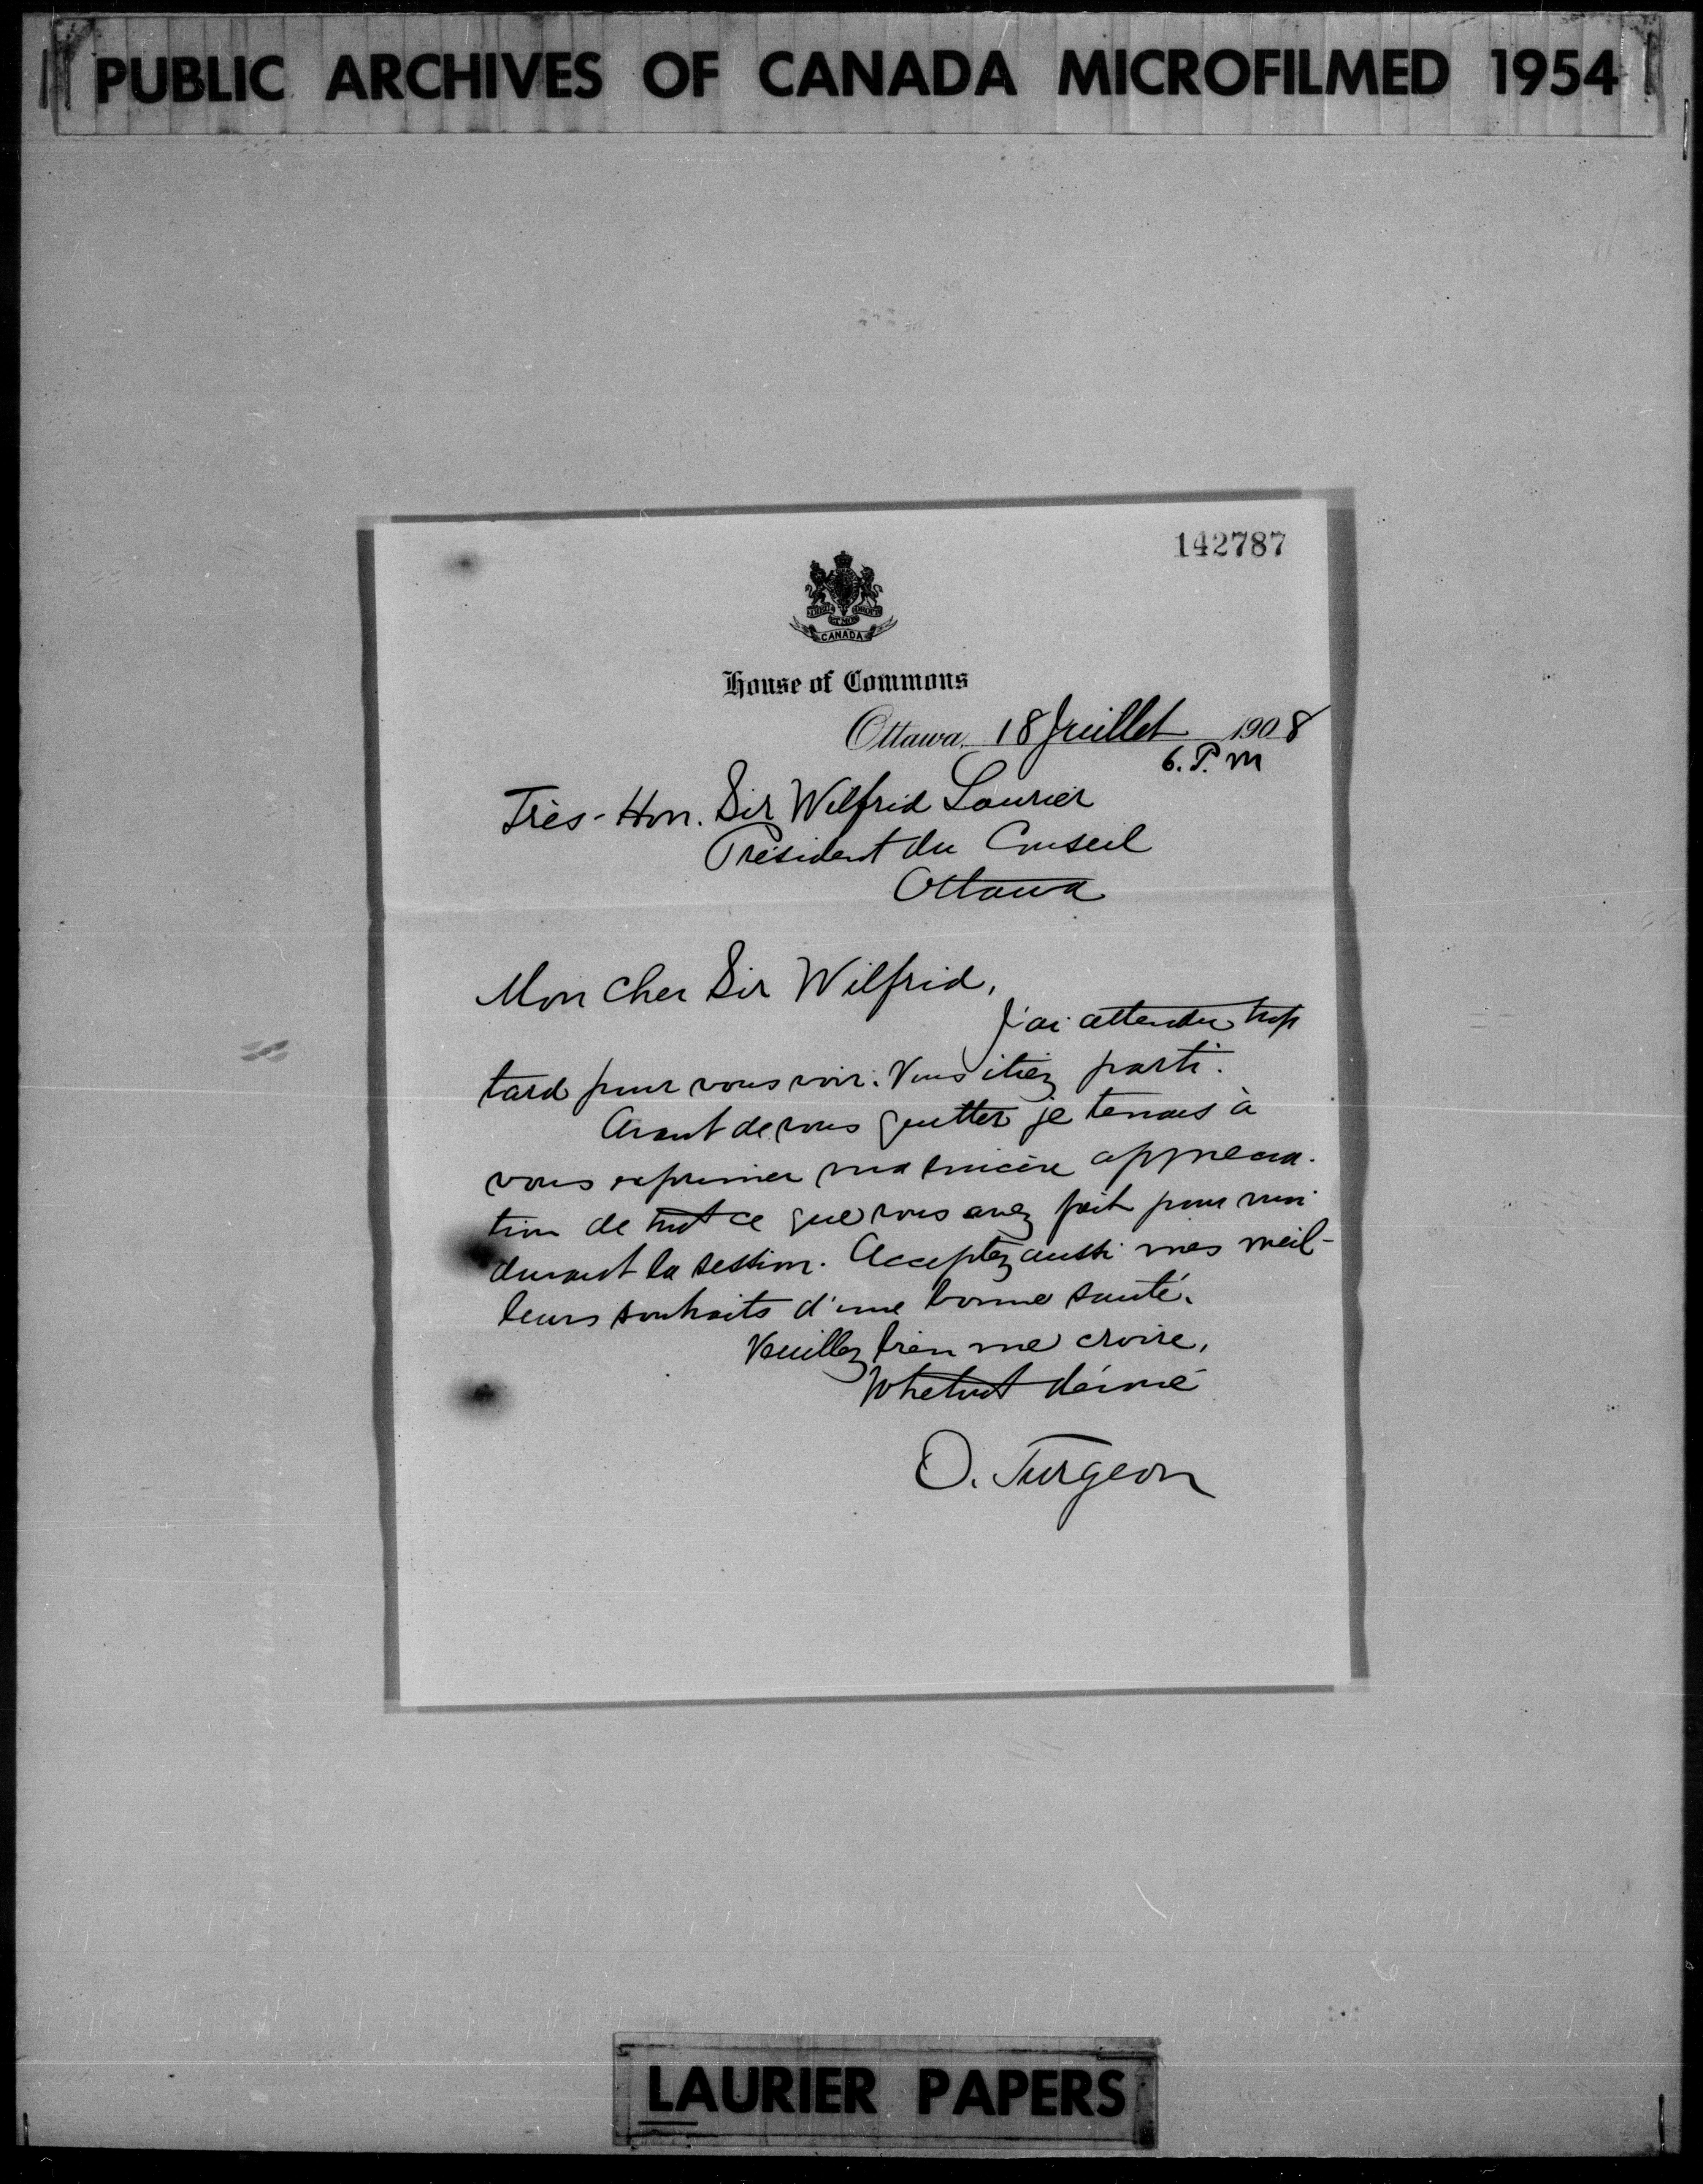 PUBLIC ARCHIVES OF CANADA MICROFILMED 1954
142787
CANADA
House of Commons
Ottawa, 18 Juillet 1908
6. P. M
Très-Hon. Sir Wilfrid Laurier
Président du Conseil
Ottawa
Mon cher Sir Wilfrid,
J'ai attendu trop
tard pour vous voir. Vous étiez parti.
Avant de vous quitter je tenais à
vous exprimer ma sincère apprécia-
tion de tout ce que vous avez fait pour moi
durant la session. Acceptez aussi mes meil-
leurs souhaits d'une bonne santé.
Veuillez bien me croire,
Votre tout dévoué
O. Turgeon
LAURIER PAPERS